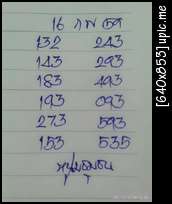 16 กพ 59
132 243
143 293
183 493
193 093
273 593
153 535
[640x853] upic.me